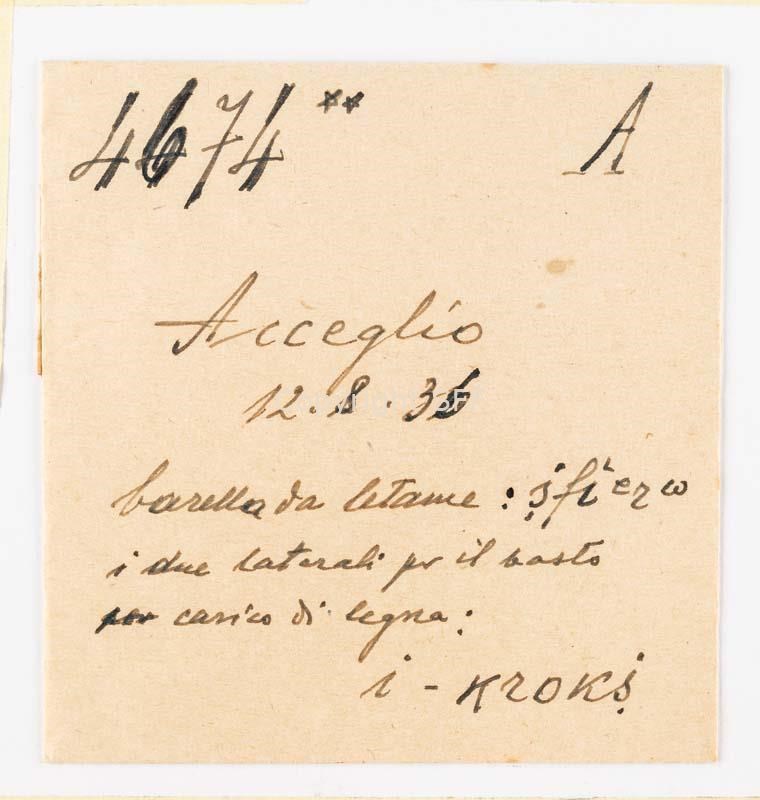 4674** A
Acceglio
12.8.36
barella da letame : ṣ́fi'erω
i due laterali per il basto
per carico di legna:
i - кrokṣ́